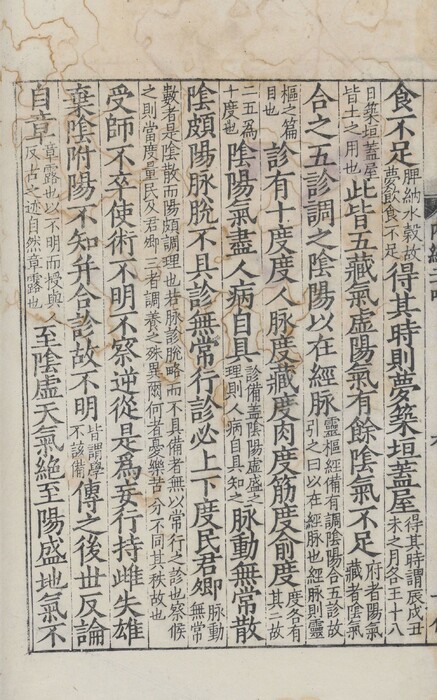 食不足脾納水穀故夢飲食不足得其時則夢築垣蓋屋得其時謂辰戌丑未之月各王十八
日築垣蓋屋皆土之用也此皆五藏氣虛陽氣有餘陰氣不足府者陽氣藏者陰氣
合之五診調之陰陽以在經脉靈樞經備有調陰陽合五診故引之曰以在經脉也經脉則靈
樞之篇目也診有十度度人脉度藏度肉度筋度俞度度各有其二故
二五為十度也陰陽氣盡人病自具診備蓋陰陽虛盛之理則人病自具知之脉動無常散
陰頗陽脉脫不具診無常行診必上下度民君卿脉動無常
數者是陰散而陽頗調理也若脉診脫略而不具備者無以常行之診也察候之則當度量民及君卿三者調養之殊異爾何者憂樂苦分不同其秩故也
受師不卒使術不明不察逆從是為妄行持雌失雄
棄陰附陽不知并合診故不明皆謂學不該備傳之後世反論
自章章露也以不明而授與人反古之迹自然章露也至陰虛天氣絕至陽盛地氣不